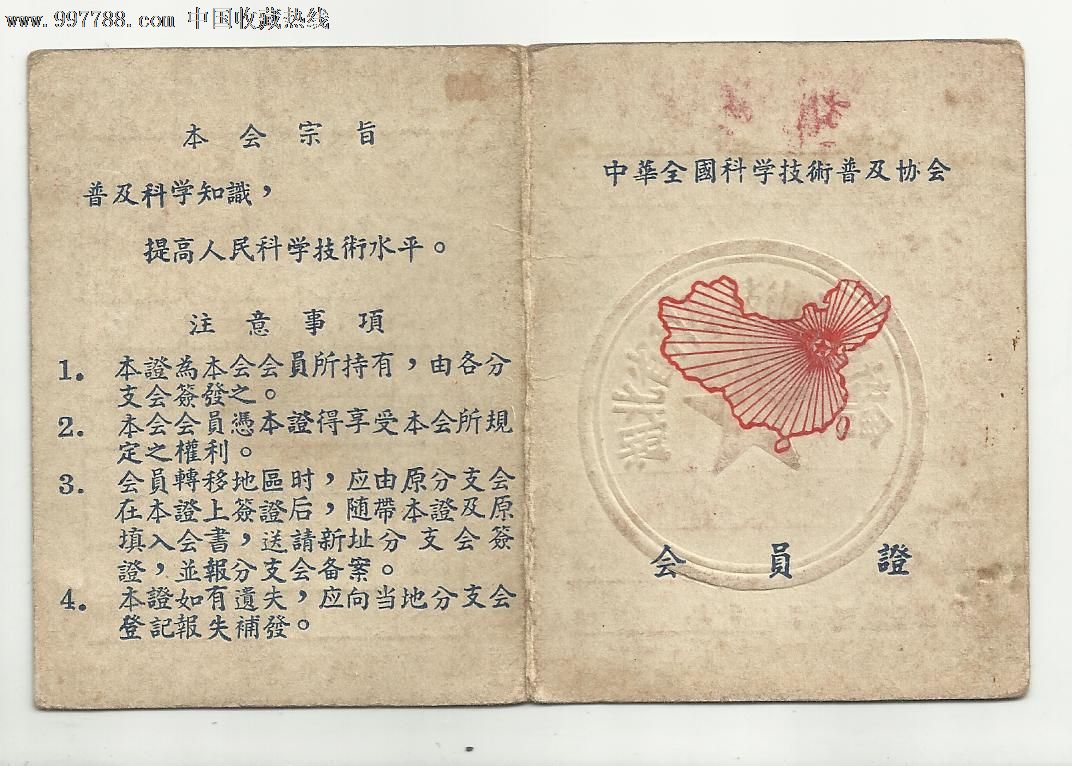 www.997788.com 中国收藏热线
本会宗旨
普及科学知識，
提高人民科学技術水平。
注意事項
1. 本證為本会会員所持有，由各分
支会簽發之。
2. 本会会員憑本證得享受本会所規
定之權利。
3. 会員轉移地區时，应由原分支会
在本證上簽證后，随帶本證及原
填入会書，送請新址分支会簽
證，並報分支会备案。
4. 本證如有遺失，应向当地分支会
登記報失補發。
中華全國科学技術普及协会
会員證